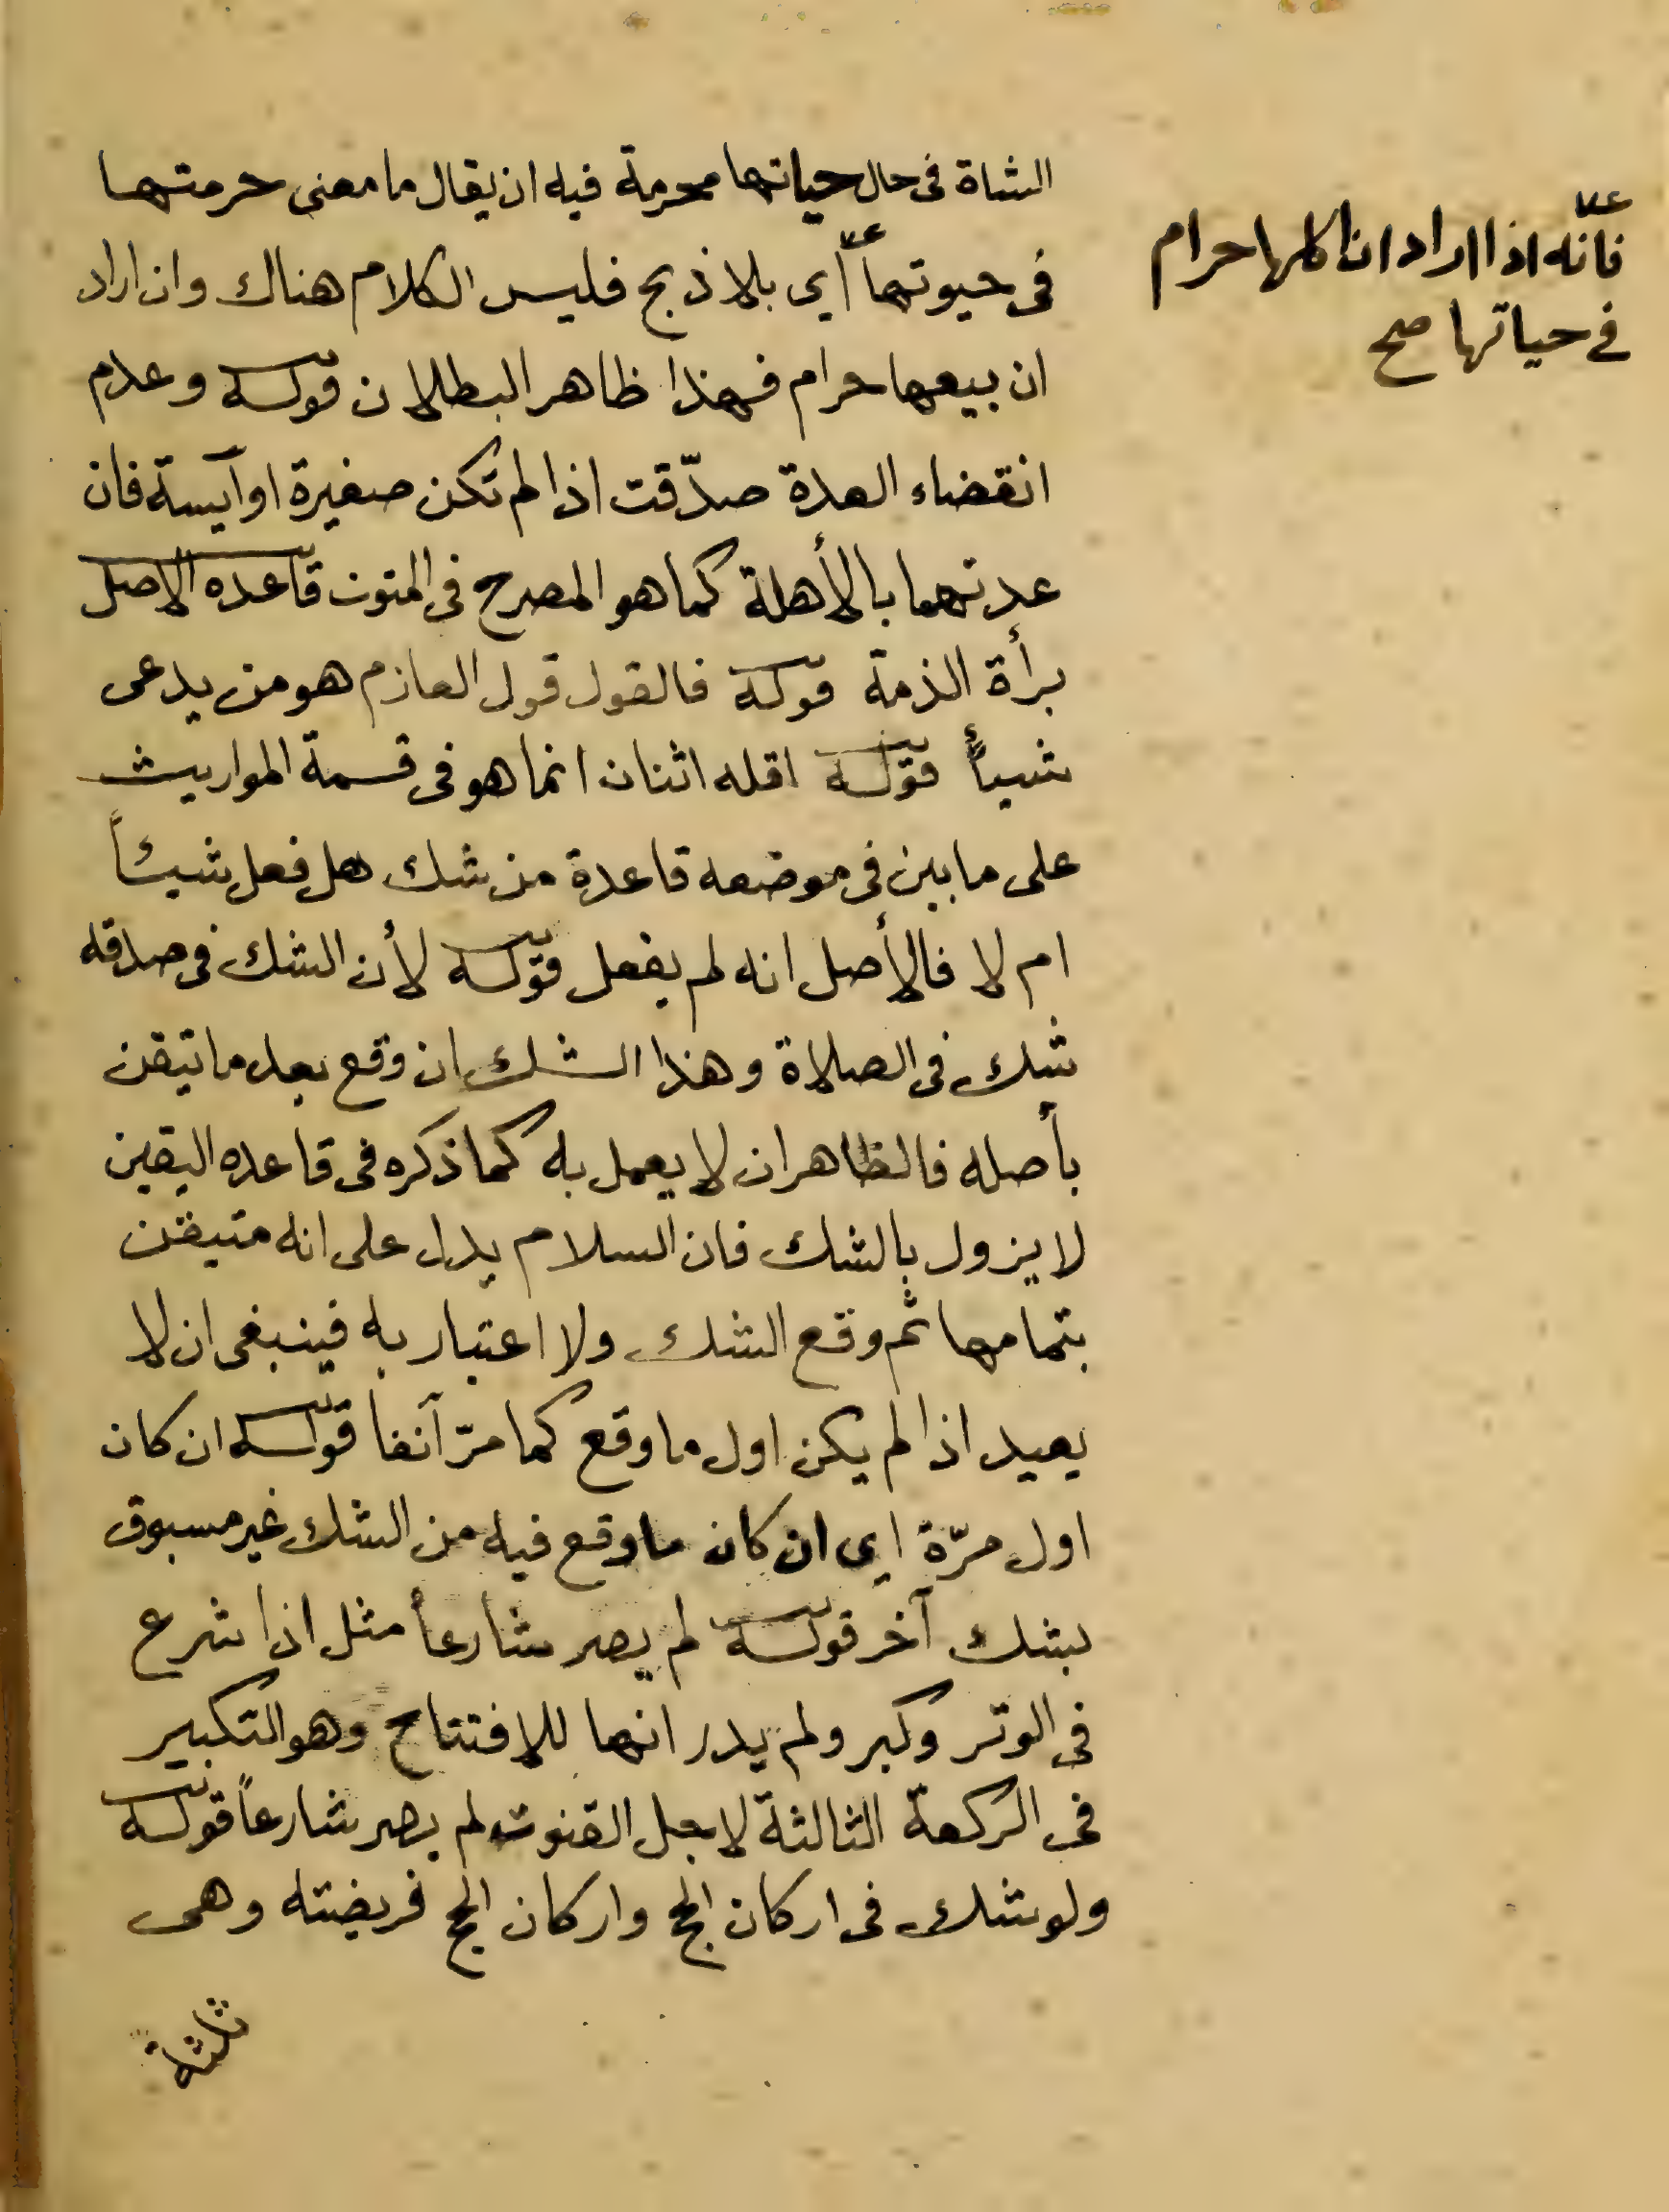 الشاة فى حال حياتها محرمة فيه ان يقال ما معنى حرمتها
فى حيوتها أي بلا ذبح فليس الكلام هناك وان اراد
ان بيعها حرام فهذا ظاهر البطلان قوله وعدم
انقضاء العدة صدّقت اذا لم تكن صغيرة او آيسة فان
عدتهما بالأهلة كما هو المصرح فى المتون قاعده الاصل
برأة الذمة قوله فالقول قول الغازم هو من يدعى
شيأً قوله اقله اثنان انما هو فى قسمة المواريث
على ما بين فى موضعه قاعدة من شك هل فعل شيئاً
ام لا فالأصل انه لم يفعل قوله لأن الشك فى صدقه
شك فى الصلاة وهذا الشك ان وقع بعد ما تيقن
بأصله فالظاهر ان لا يعمل به كما ذكره فى قاعده اليقين
لا يزول بالشك فان السلام يدل على انه متيقن
بتمامها ثم وقع الشك ولا اعتبار به فينبغى ان لا
يعيد اذا لم يكن اول ما وقع كما مرّ آنفا قوله ان كان
اول مرّة اي ان كان ما وقع فيه من الشك غير مسبوق
بشك آخر قوله لم يصر شارعاً مثل اذا شرع
فى الوتر وكبر ولم يدر انها للافتتاح وهو التكبير
فى الركعة الثالثة لاجل القنوت لم يصر شارعاً قوله
ولو شك فى اركان الحج واركان الحج فريضته وهى
ثلثة
فانّه اذا اراد ان اكلها حرام
فى حياتها صح